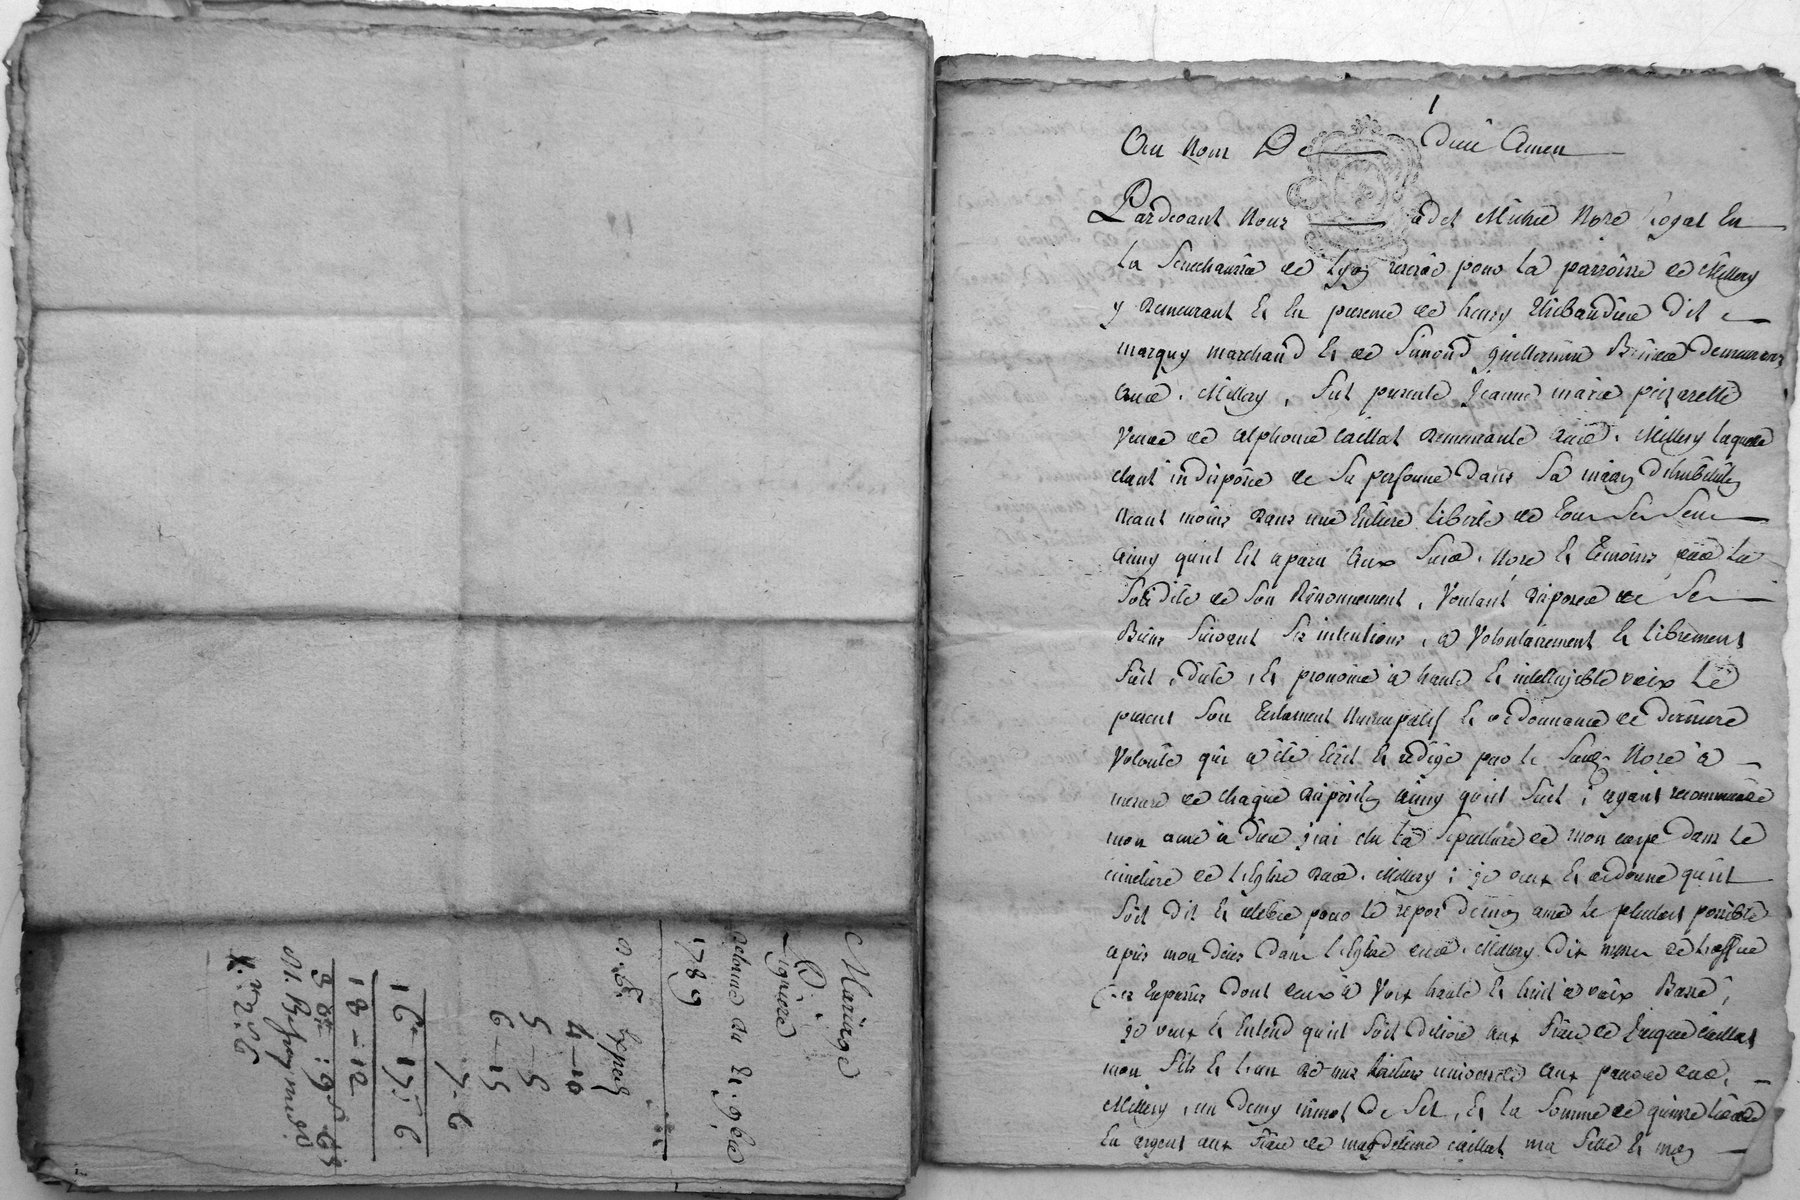 Mariage
D.
Lignière
1789
Exped
4 – 10
5 – 8
6 – 15
7 – 6
16 – 17 – 6
18 – 12
1
Au Nom De Dieu Amen
Pardevant Nous Nore Royal En
La Senechaussée de Lyon reservé pour La parroisse de Millery
y demeurant Et En presence de henry Thibaudier dit
marquy marchand Et de Simond guillermin demeurants
aud. Millery, fut presente Jeanne marie pizarette
Veuve de alphonse Caillat demeurante aud. Millery laquelle
étant indisposée de Sa personne dans Sa maison d'habitation
neant moins dans une Entiere liberté de Tous Ses Sens
ainsy qu'il Est aparu aux Susd. Nore Et Temoins par La
Solidité de Son Raisonnement, Voulant disposer de Ses
Biens Suivant Ses intentions, a Volontairement Et librement
fait, dicté, Et prononcé à haute Et intellijible voix Le
present Son Testament Nuncupatif Et ordonnance de derniere
Volonté qui a été Ecrit Et rédigé par le Susd. Nore à
mesure de chaque disposition ainsy qu'il Suit; ayant recommandé
mon ame à Dieu j'ai élu La Sepulture de mon corps dans Le
cimetiere de L'Eglise dud. Millery; je veux Et ordonne qu'il
Soit dit Et celebré pour Le repos de mon ame Le plutost possible
après mon décès dans L'Eglise dud. Millery dix messes de
Trepassés dont à Voix haute Et huit à voix Basse;
je veux Et Entend qu'il Soit délivré aux frais de Caillat
mon fils Et l'un de mes héritiers universels aux pauvres dud.
Millery, un demy de Sel, Et La Somme de quinze livres
En argent aux frais de magdeleine Caillat ma fille Et mon